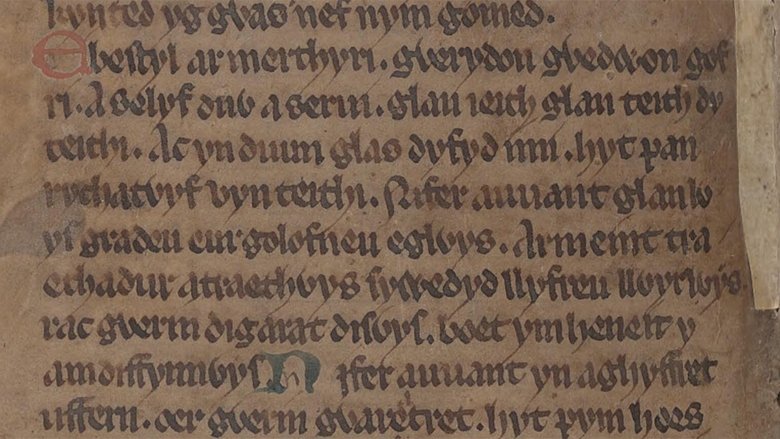 kynted yg gvas nef nym gomed.
Ebestyl ar merthyri. gverydon gvedwon gof
ri. A selyf duv a serui. glan ieith glan teith dy
teithi. Ac yn duun glas dyfyd imi. hyt pan
rychatvyf vyn teithi. Nifer a uuant glanlo
ys gradeu eurgolofneu eglvys. Ar meint tra
ethadur a traethvys sywedyd llyfreu llvyrwys.
rac gverin digarat disvys. boet ym heneit y
amdiffynnvys. Nifer a uuant yn aghyffret
uffern. oer gverin gvaretret. hyt pym hoes